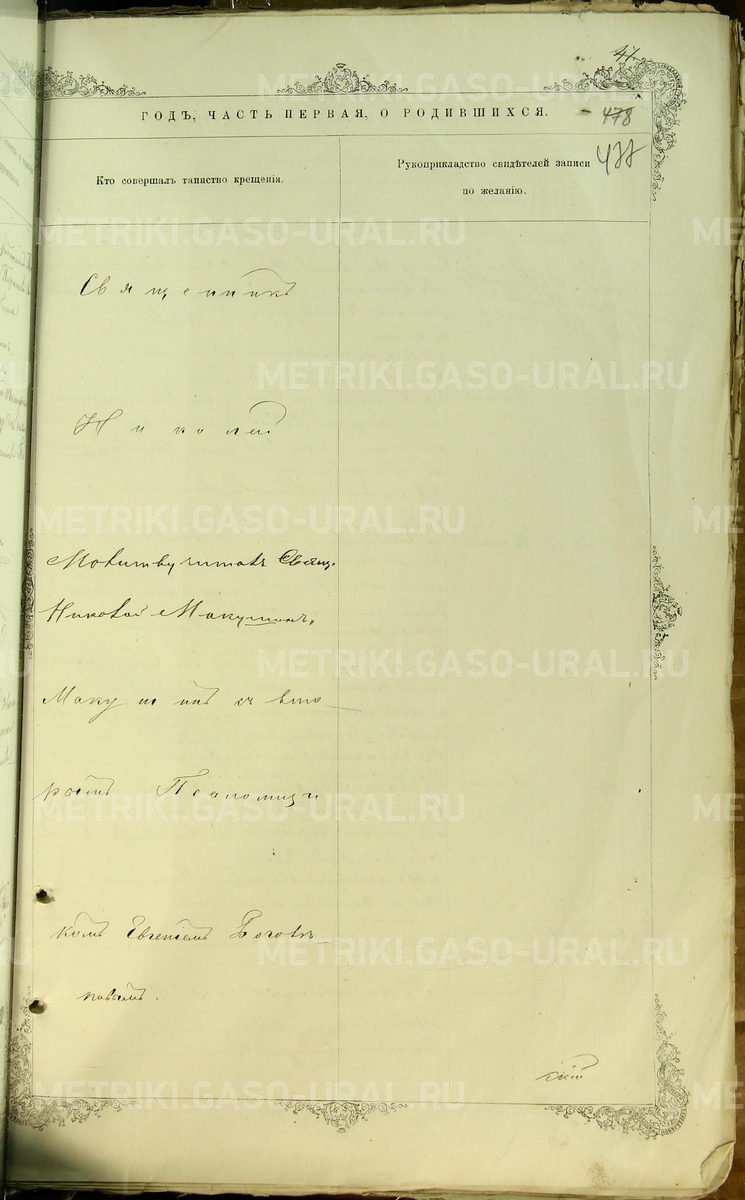 47.
ГОДЪ, ЧАСТЬ ПЕРВАЯ, О РОДИВШИХСЯ.
478
477
Кто совершалъ таинство крещенія.
Рукоприкладство свидѣтелей записи
по желанію.
Священникъ
Николай
Молитву читалъ Свящ.
Николай Макушинъ.
Макушинъ съ вто-
рымъ Псаломщи
комъ Евгеніемъ
скій
METRIKI.GASO-URAL.RU